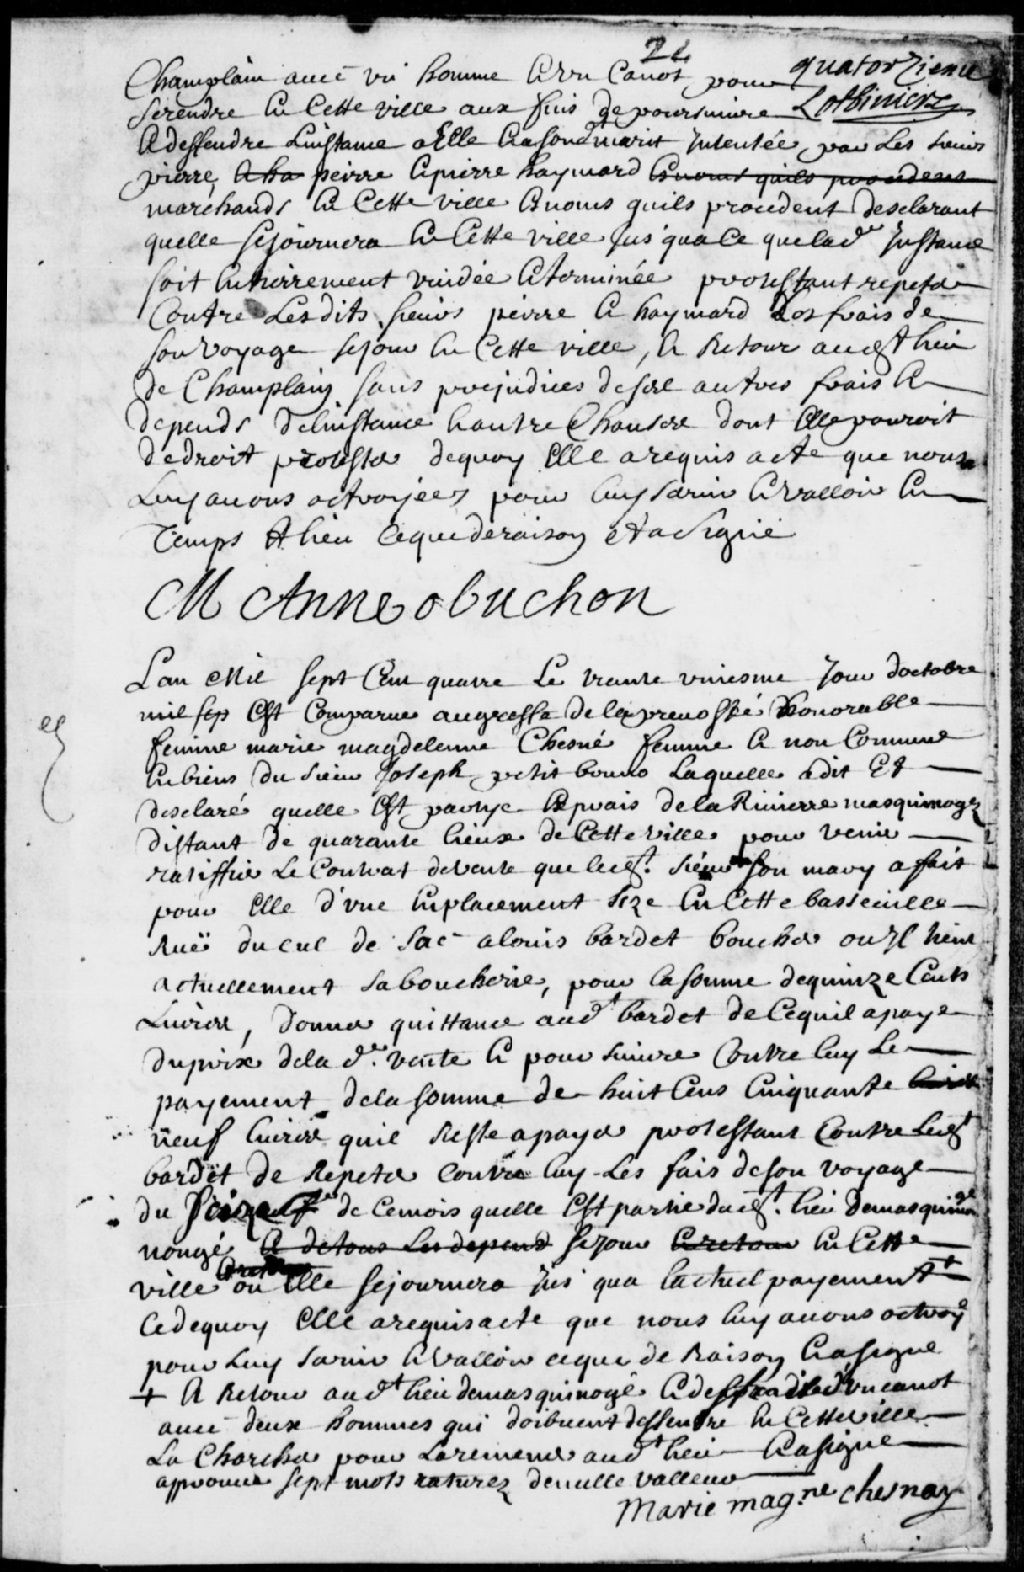 24
quatorzieme
Lotbiniere
Champlain avec un homme & un Canot pour
se rendre en Cette ville aux fins de poursuivre
& deffendre Linstance a Elle & a son d marit Intentée par Les sieurs
pierre peirre & pierre haymard & noms quils procedent
marchands en Cette ville & noms quils procedent desclarant
quelle sejournera en Cette ville Jus'qua Ce que lad.e Instance
soit entierrement vuidée & terminée protestant repeter
Contre Lesdits sieurs peirre & haymard Les frais de
son voyage sejour en Cette ville, & Retour aud.t lieu
de Champlain sans prejudices de ses autres frais &
depends de linstance & autre Chauses dont Elle pouroit
de droit protester de quoy Elle a requis acte que nous
Luy avons octroyée pour luy servir & valloir en
Temps & lieu Ce que de raison et a Signé
M Anne obuchon
Lan Mil sept Cent quatre Le trante uniesme Jour d'octobre
mil sep Est Comparue au greffe de la prevosté honorable
femme marie magdelenne Chesné femme & non Commune
en biens du sieur Joseph petit bruno Laquelle a dit Et
desclaré quelle Est partye Exprais de la Rivierre masquinogé
distant de quarante lieux de Cette ville pour venir
ratiffier Le Contrat de vente que led.t sieur son mary a fait
pour Elle d'une Emplacement size en Cette basse ville
Ruë du cul de sac a louis bardet boucher ou Il tient
actuellement sa boucherie, pour la somme de quinze Cents
Livres, donner quittance aud.t bardet de Ce quil a payé
du prix de la d.e vente & poursuivre Contre luy Le
payement de la somme de huit Cens Cinquante livres
neuf livres quil Reste a payer protestant Contre Led.t
bardet de Repeter contre luy Les fais de son voyage
du seize de Ce mois quelle Est partie dud.t lieu de masquinon
nongé & de tous Les depens sejour & retour en Cette
ville ou Elle sejournera Jus'qua lactuel payement +
Ce de quoy Elle a requis acte que nous luy avons octroyé
pour Luy servir & valloir ce que de Raison & a signé
+ & Retour aud.t lieu de masquinogé & d'un canot
avec deux hommes qui doibvent dessendre en Cette ville
La Chercher pour La remener aud.t lieu & a signé
approuvé sept mots raturez de nulle valleur
Marie mag.ne chesnay